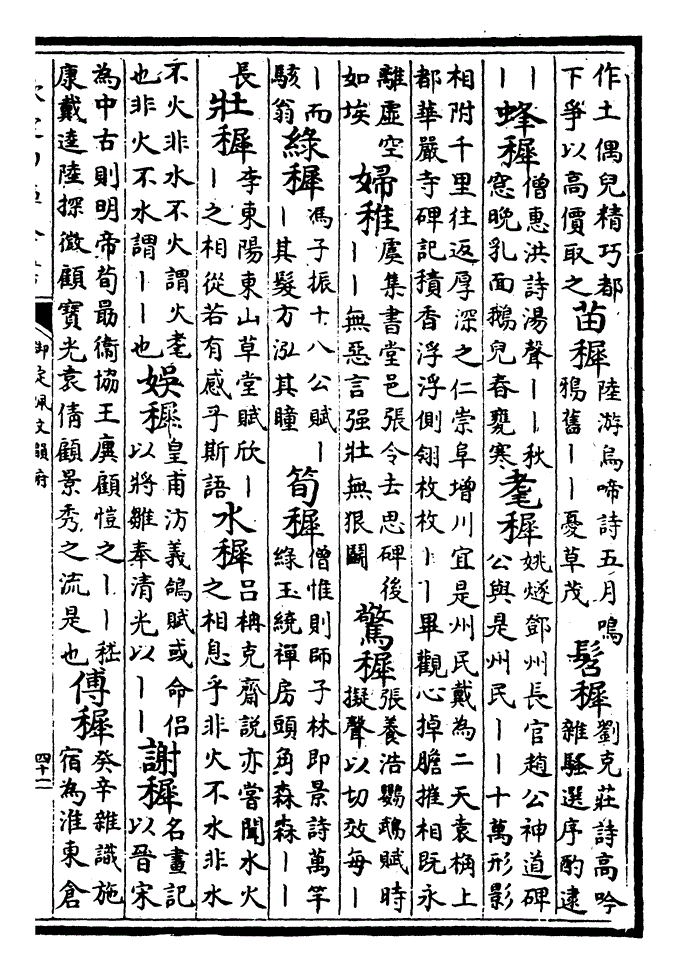 作土偶兒精巧都下爭以高價取之 苗穉 陸游烏啼詩五月鳴鴉舊｜｜憂草茂 髫穉 劉克莊詩高吟雜騷選序酌逮
｜｜ 蜂穉 僧惠洪詩湯聲｜｜秋窓晚乳面鵝兒春甕寒 耄穉 姚燧鄧州長官趙公神道碑公與是州民｜｜十萬形影
相附千里往返厚深之仁崇阜增川宜是州民戴為二天袁桷上都華嚴寺碑記積香浮浮側翎枚枚｜｜畢觀心掉膽摧相阮永
離虛空如埃 婦稚 虞集書堂邑張令去思碑後｜｜無惡言强壯無狠鬭 驚穉 張養浩鸚鵡賦時擬聲以切效每｜
｜而駭翁 綠穉 馮子振十八公賦｜｜其髮方泓其瞳 筍穉 僧惟則師子林即景詩萬竿綠玉繞禪房頭角森森｜｜
長 壯穉 李東陽東山草堂賦欣｜｜之相從若有感乎斯語 水穉 呂柟克齋説亦嘗聞水火之相息乎非火不水非水
不火非水不火謂火耄也非火不水謂｜｜也 娛穉 皇甫汸義鴿賦或命侶以將雛奉清光以｜｜ 謝穉 名畫記以晉宋
為中古則明帝荀勗衞協王廙顧愷之｜｜嵇康戴逵陸探微顧寶光袁倩顧景秀之流是也 傅穉 癸辛雜識施宿為淮東倉
御定佩文韻府
四十二